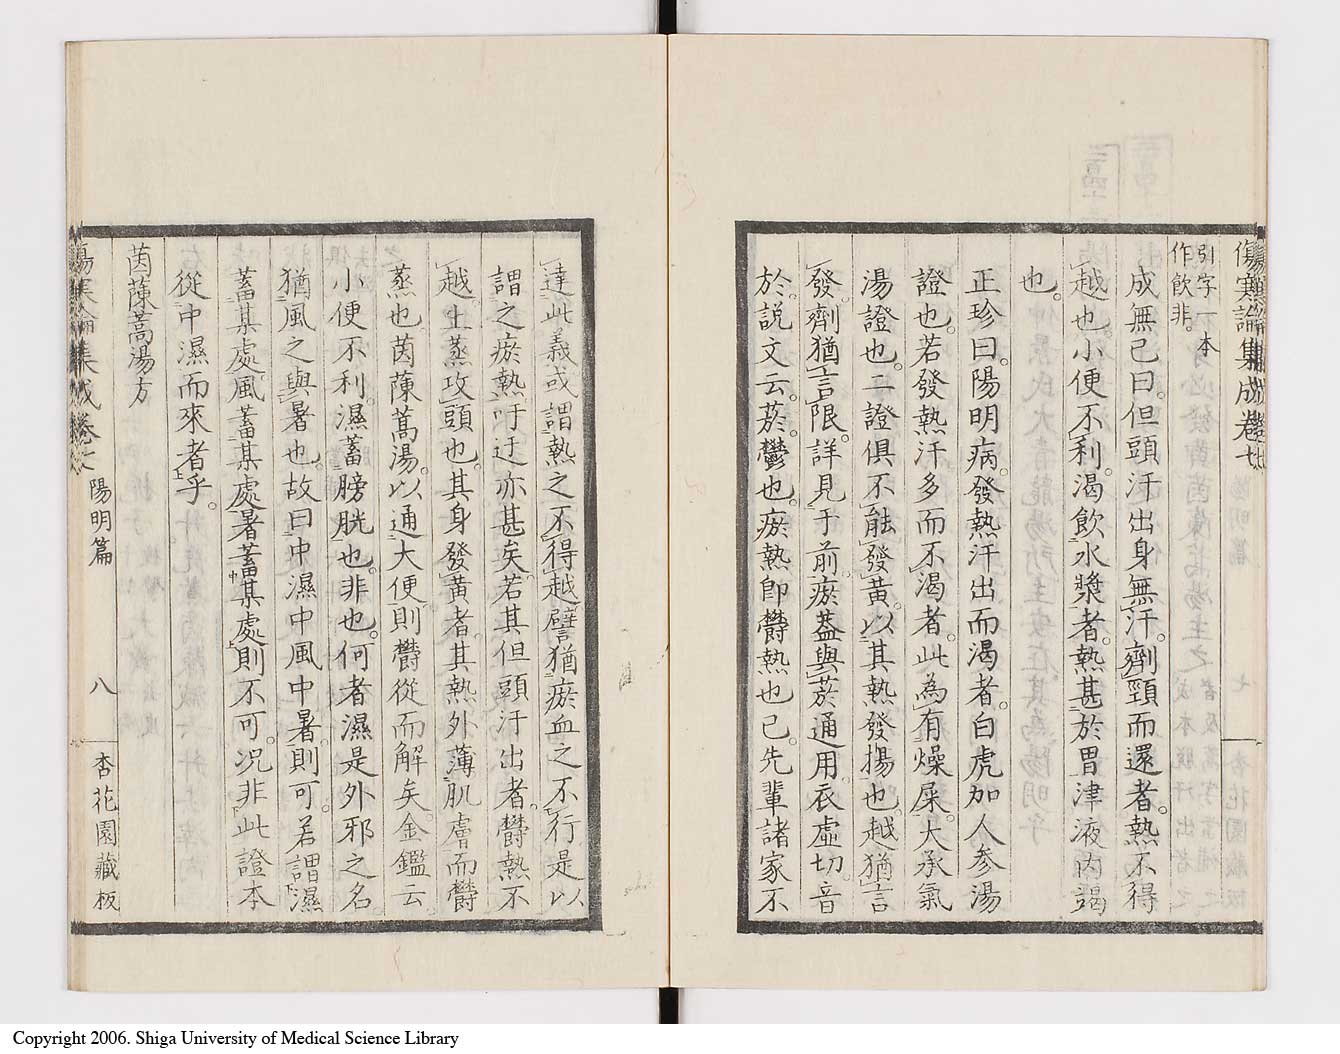 傷寒論集成卷七
引字一本
作飲非。
成無己曰。但頭汗出身無汗。劑頸而還者。熱不得
越也。小便不利。渴飲水漿者。熱甚於胃津液內竭
也。
正珍曰。陽明病。發熱汗出而渴者。白虎加人參湯
證也。若發熱汗多而不渴者。此為有燥屎。大承氣
湯證也。二證俱不能發黃。以其熱發揚也。越猶言
發。劑猶言限。詳見于前。瘀蓋與菸通用。衣虛切。音
於。說文云。菸。鬱也。瘀熱即鬱熱也已。先輩諸家不
達此義或謂熱之不得越譬猶瘀血之不行是以
謂之瘀熱吁迂亦甚矣。若其但頭汗出者。鬱熱不
越上蒸攻頭也。其身發黃者。其熱外薄肌膚而鬱
蒸也。茵蔯蒿湯。以通大便則鬱從而解矣。金鑑云。
小便不利。濕蓄膀胱也。非也。何者濕是外邪之名。
猶風之與暑也。故曰中濕中風中暑。則可。若謂濕
蓄某處。風蓄某處。暑蓄某處。則不可。況非此證本
從中濕而來者乎。
茵蔯蒿湯方
傷寒論集成卷七
陽明篇
八
杏花園藏板
Copyright 2006. Shiga University of Medical Science Library